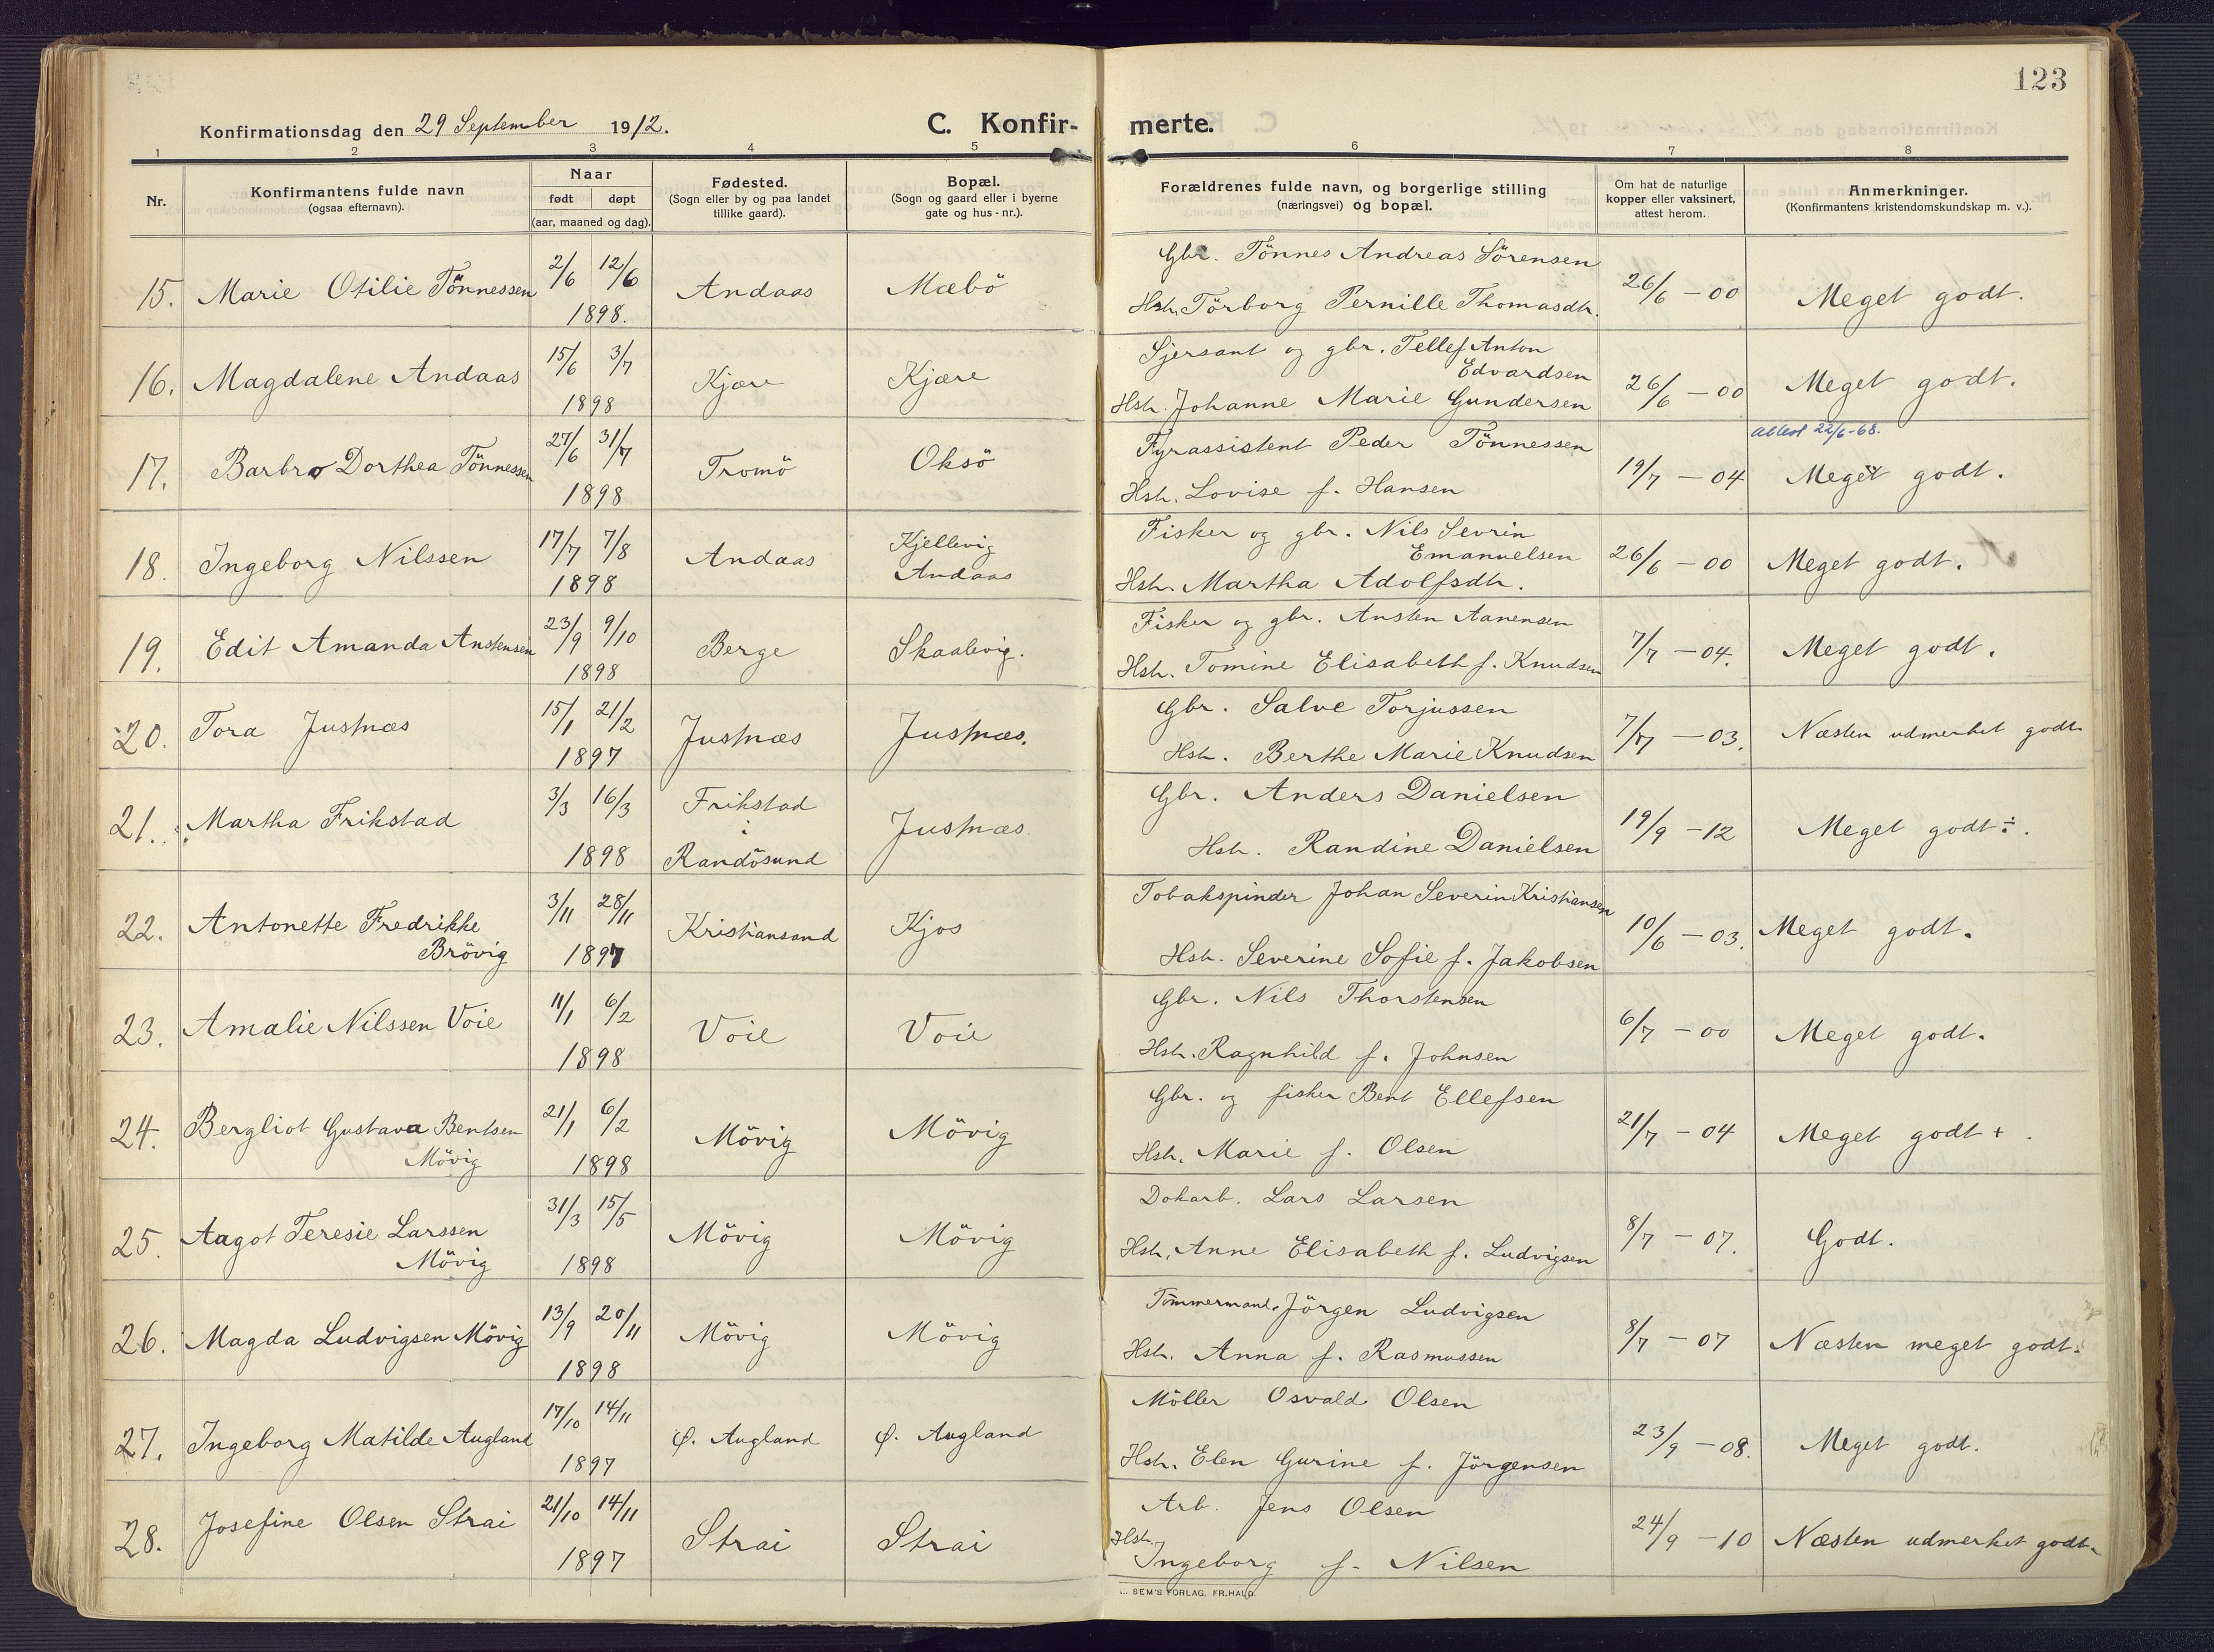 123
Konfirmationsdag den 29 September 1912.
C. Konfir-
merte.
1 2 3 4 5 6 7 8
Nr.
Konfirmantens fulde navn
(ogsaa efternavn).
Naar
født døpt
(aar, maaned og dag).
Fødested.
(Sogn eller by og paa landet
tillike gaard).
Bopæl.
(Sogn og gaard eller i byerne
gate og hus-nr.).
Forældrenes fulde navn, og borgerlige stilling
(næringsvei) og bopæl.
Om hat de naturlige
kopper eller vaksinert,
attest herom.
Anmerkninger.
(Konfirmantens kristendomskundskap m. v.).
15. Marie Otilie Tönnessen 2/6 12/6 1898. Andaas Mæbö
Gbr. Tönnes Andreas Sörensen
Hstr. Törborg Pernille Thomasdtr. 26/6 - 00 Meget godt.
16. Magdalene Andaas 15/6 3/7 1898 Kjære Kjære
Sjersant og gbr. Tellef Anton
Edvardsen
Hstr. Johanne Marie Gundersen 26/6 - 00 Meget godt.
17. Barbro Dorthea Tönnessen 27/6 31/7 1898 Tromö Oksö
Fyrassistent Peder Tönnessen
Hstr. Lovise f. Hansen 19/7 - 04 Meget godt.
Attest 22/6-68.
18. Ingeborg Nilssen 17/7 7/8 1898 Andaas Kjellevig
Andaas
Fisker og gbr. Nils Sevrin
Emanuelsen
Hstr. Martha Adolfsdtr. 26/6 - 00 Meget godt.
19. Edit Amanda Anstensen 23/9 9/10 1898 Berge Skaalevig.
Fisker og gbr. Ansten Aanensen
Hstr. Tomine Elisabeth f. Knudsen 7/7 - 04. Meget godt.
20. Tora Justnæs 15/1 21/2 1897 Justnæs Justnæs.
Gbr. Salve Torjussen
Hstr. Berthe Marie Knudsen 7/7 - 03. Næsten udmerket godt.
21. Martha Frikstad 3/3 16/3 1898 Frikstad
i
Randösund Justnæs.
Gbr. Anders Danielsen
Hstr. Randine Danielsen 19/9 - 12 Meget godt ÷.
22. Antonette Fredrikke
Brövig 3/11 28/11 1897 Kristiansand Kjos
Tobakspinder Johan Severin Kristiansen
Hstr. Severine Sofie f. Jakobsen 10/6 - 03. Meget godt.
23. Amalie Nilssen Voie 11/1 6/2 1898 Voie Voie
Gbr. Nils Thorstensen
Hstr. Ragnhild f. Johnsen 6/7 - 00 Meget godt.
24. Bergliot Gustava Bentsen
Mövig 21/1 6/2 1898 Mövig Mövig
Gbr. og fisker Bent Ellefsen
Hstr. Marie f. Olsen 21/7 - 04 Meget godt + .
25. Aagot Teresie Larssen
Mövig 31/3 15/5 1898 Mövig Mövig
Dokarb. Lars Larsen
Hstr. Anne Elisabeth f. Ludvigsen 8/7 - 07. Godt.
26. Magda Ludvigsen Mövig 13/9 20/11 1898 Mövig Mövig
Tömmermand. Jörgen Ludvigsen
Hstr. Anna f. Rasmussen 8/7 - 07 Næsten meget godt.
27. Ingeborg Matilde Augland 17/10 14/11 1897 Ø. Augland Ø. Augland
Möller Osvald Olsen
Hstr. Elen Gurine f. Jörgensen 23/9 - 08. Meget godt.
28. Josefine Olsen Strai 21/10 14/11 1897 Strai Strai
Arb. Jens Olsen
Hstr.
Ingeborg f. Nilsen 24/9 - 10 Næsten udmerket godt.
SEM'S FORLAG, FR.HALD